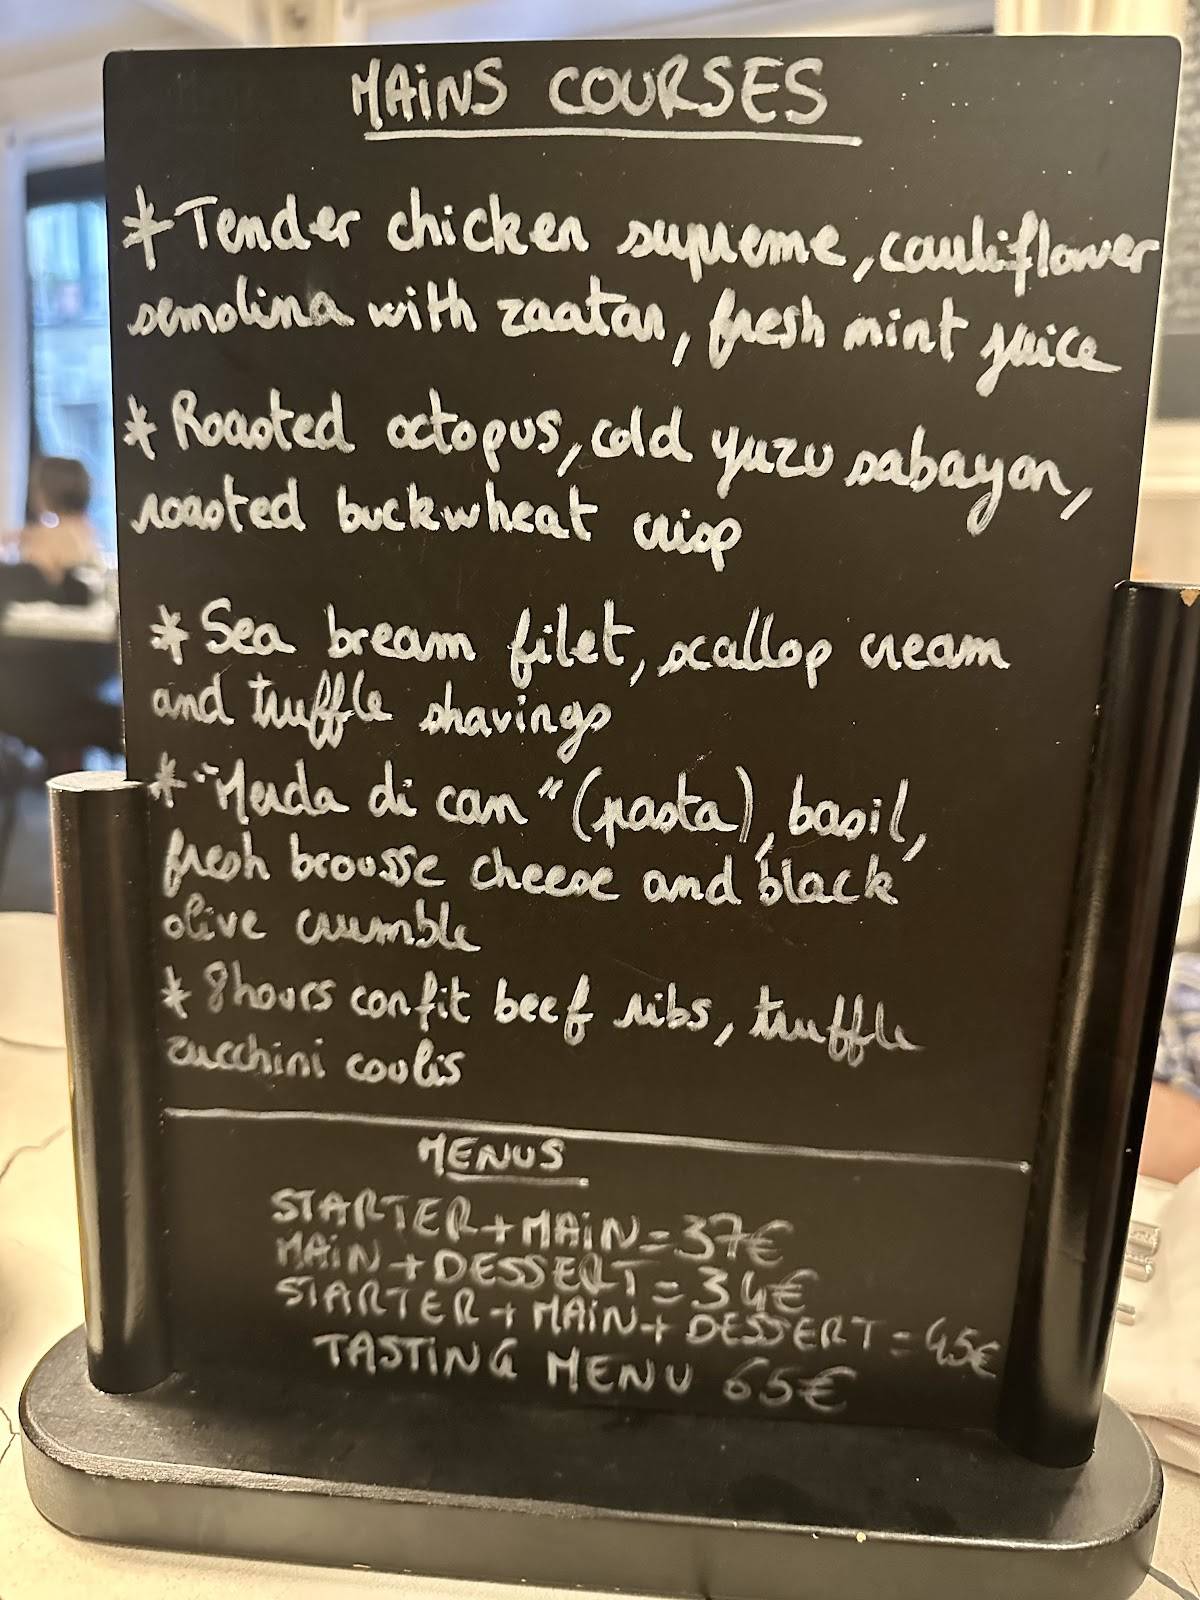 MAINS COURSES
* Tender chicken supreme, cauliflower
semolina with zaatar, fresh mint juice
* Roasted octopus, cold yuzu sabayon,
roasted buckwheat crisp
* Sea bream filet, scallop cream
and truffle shavings
* "Merda di can" (pasta), basil,
fresh brousse cheese and black
olive crumble
* 8hours confit beef ribs, truffle
zucchini coulis
MENUS
STARTER+MAIN=37€
MAIN+DESSERT=34€
STARTER+MAIN+DESSERT=45€
TASTING MENU 65€